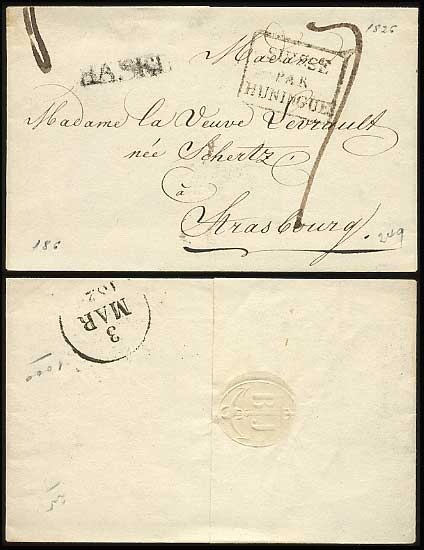 1826
Madame
BASEL
SUISSE
PAR
HUNINGUE
7
Madame la Veuve Levrault
née Schertz
à
Strasbourg.
186
249
3
MAR
182
1000